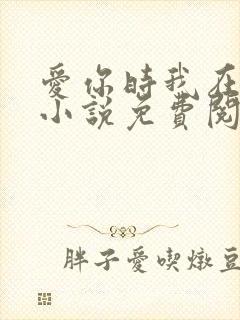 愛你時我在
小說免費閱
胖子愛喫燉豆